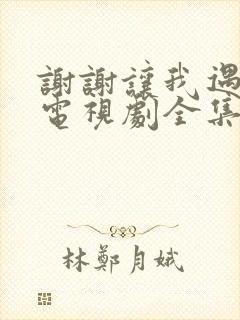 謝謝讓我遇
電視劇全集
林鄭月娥